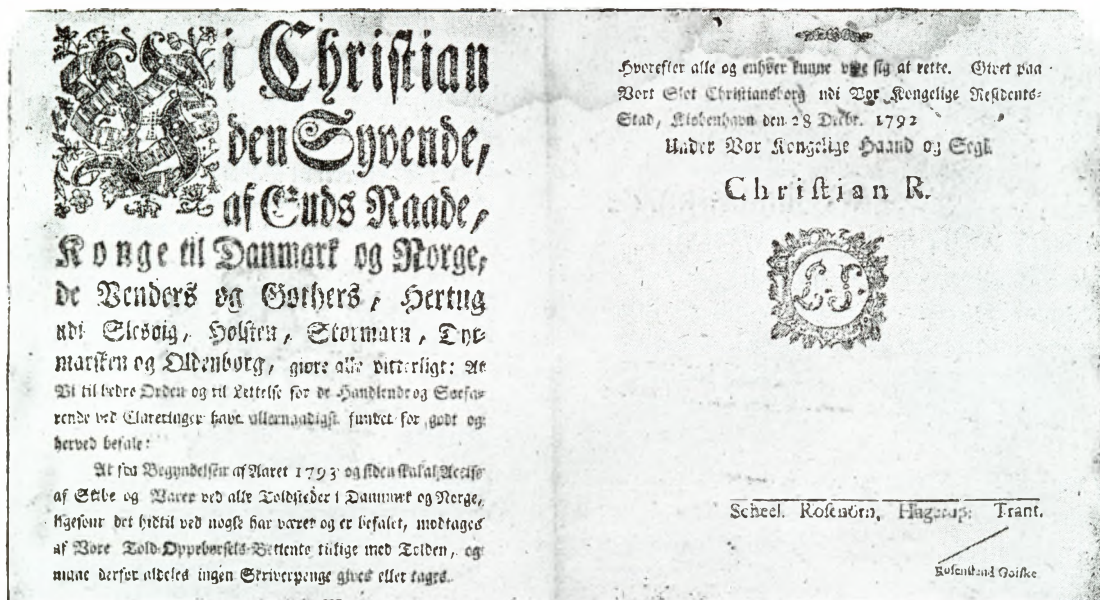 Vi Christian
den Syvende,
af Guds Naade,
Konge til Danmark og Norge,
de Venders og Gothers, Hertug
udi Slesvig, Holsten, Stormarn, Dyt-
marsken og Oldenborg, giøre alle vitterligt: At
Vi til bedre Orden og til Lettelse for de Handlende og Søefa-
rende ved Clareringer have allernaadigst fundet for godt og
herved befale:
At fra Begyndelsen af Aaret 1793 og siden skal al Accise
af Skibe og Varer ved alle Toldsteder i Danmark og Norge,
ligesom det hidtil ved nogle har været og er befalet, modtages
af Vore Told-Oppebørsels-Betiente tillige med Tolden, og
maae derfor aldeles ingen Skriverpenge gives eller tages.
Hvorefter alle og enhver kunne vide sig at rette. Givet paa
Vort Slot Christiansborg udi Vor Kongelige Residents-
Stad, Kiøbenhavn den 28 Decbr. 1792
Under Vor Kongelige Haand og Segl.
Christian R.
L. S.
Scheel. Rosenørn. Hagerup. Trant.
Rosenstand Goiske